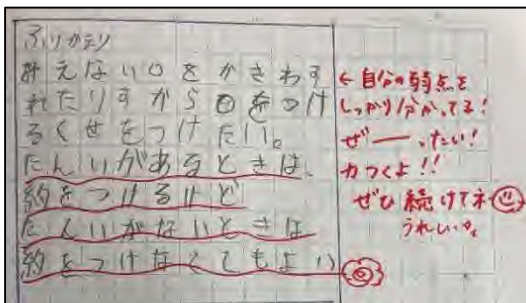 ふりかえり
計えない〇をかきわす
れたりすから〇をつけ
るくせをつけたい。
たんいがあるときは、
約をつけるけど
たんいがないときは
約をつけなくてもよい
←自分の弱点を
しっかり分かってる!
ぜ――ったい!
力つくよ!!
ぜひ続けてネ
うれしいな。